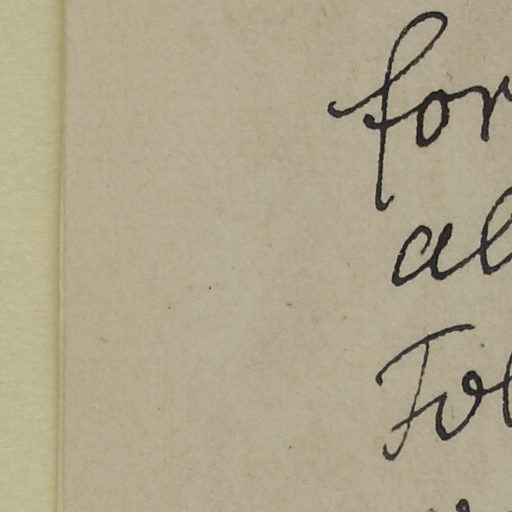 for
al
Fol